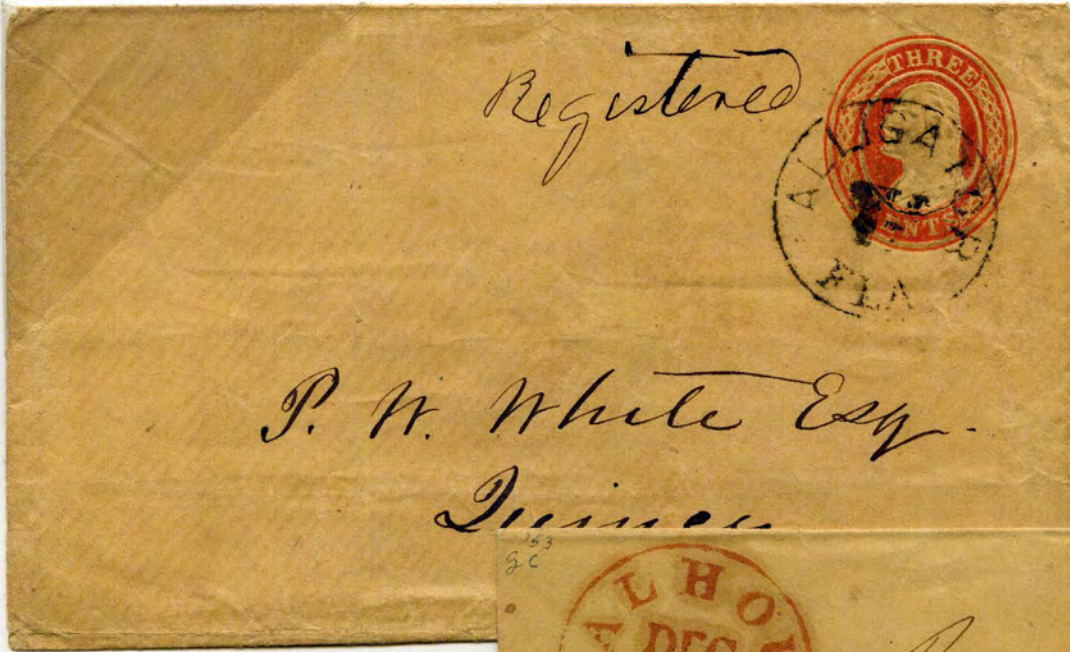 Registered
THREE
CENTS
ALLIGATOR
FLA
P. W. White Esq.
Quincy
'53
GC
ALHO
DEC